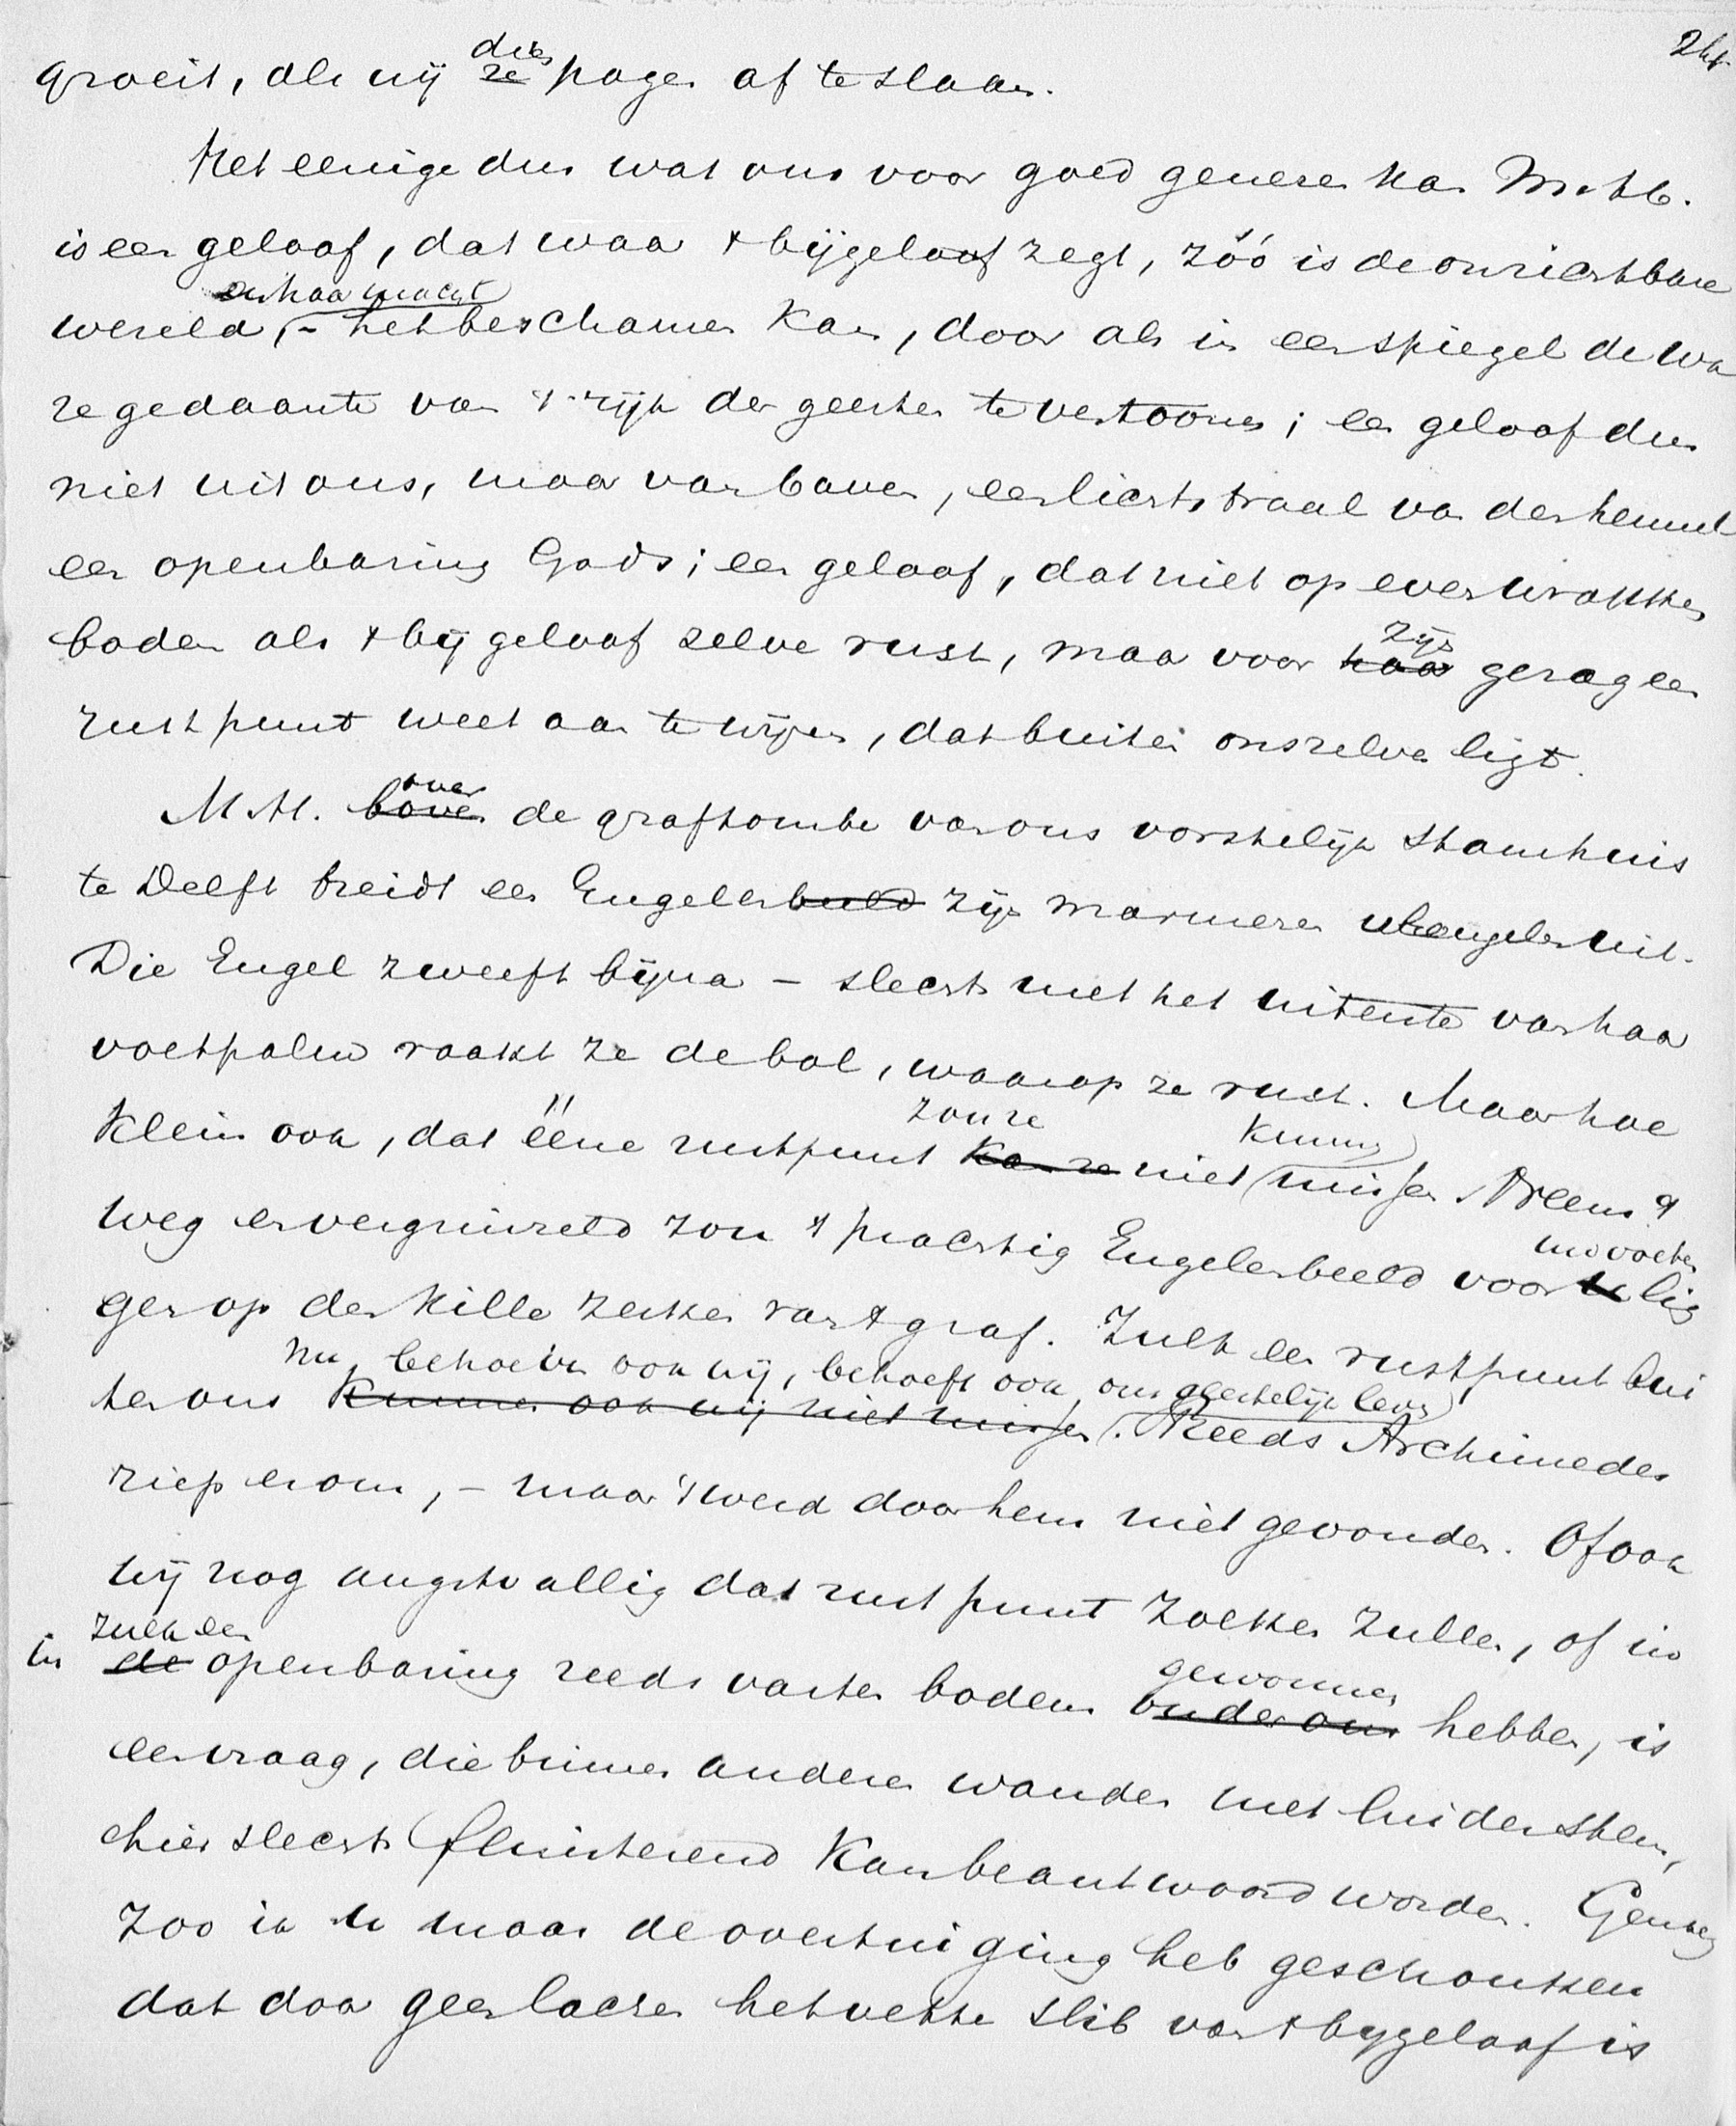 24
groeit, als wij die ze pogen af te slaan.
Het eenige dus wat ons voor goed genezen kan M. H.
is een geloof, dat waar 't bijgeloof zegt, zóó is de onzichtbare
en haar macht
wereld, – het beschamen kan, door als in een spiegel de wa
re gedaante van 't rijk der geesten te vertoonen; een geloof dus
niet uit ons, maar van boven, een lichtstraal van den hemel
een openbaring Gods; een geloof, dat niet op even wrakken
bodem als 't bijgeloof zelve rust, maar voor haar zijn gezag een
rustpunt weet aan te wijzen, dat buiten onszelven ligt.
M. H. boven over de graftombe van ons vorstelijk Stamhuis
te Delft breidt een Engelenbeeld zijn marmeren vleugelen uit.
Die Engel zweeft bijna – slechts met het uiterste van haar
voetpalm raakt ze de bol, waarop ze rust. Maar hoe
klein ook, dat ééne rustpunt kan ze zou ze niet kunnen missen. Neem 't
weg en vergruizeld zou 't prachtig Engelenbeeld voor u uw voeten lig
gen op den killen zerken van 't graf. Zulk een rustpunt bui
nu, behoeven ook wij, behoeft ook ons geestelijk leven
ten ons kunnen ook wij niet missen. Reeds Archimedes
riep erom, – maar 't werd door hem niet gevonden. Of ook
wij nog angstvallig dat rustpunt zoeken zullen, of in
in de zulk een openbaring reeds vasten bodem onder ons gewonnen hebben, is
een vraag, die binnen andere wanden met luider stem,
hier slechts fluisterend kan beantwoord worden. Genoeg
zoo ik u maar de overtuiging heb geschonken
dat door geen lachen het vette slib van 't bijgeloof is